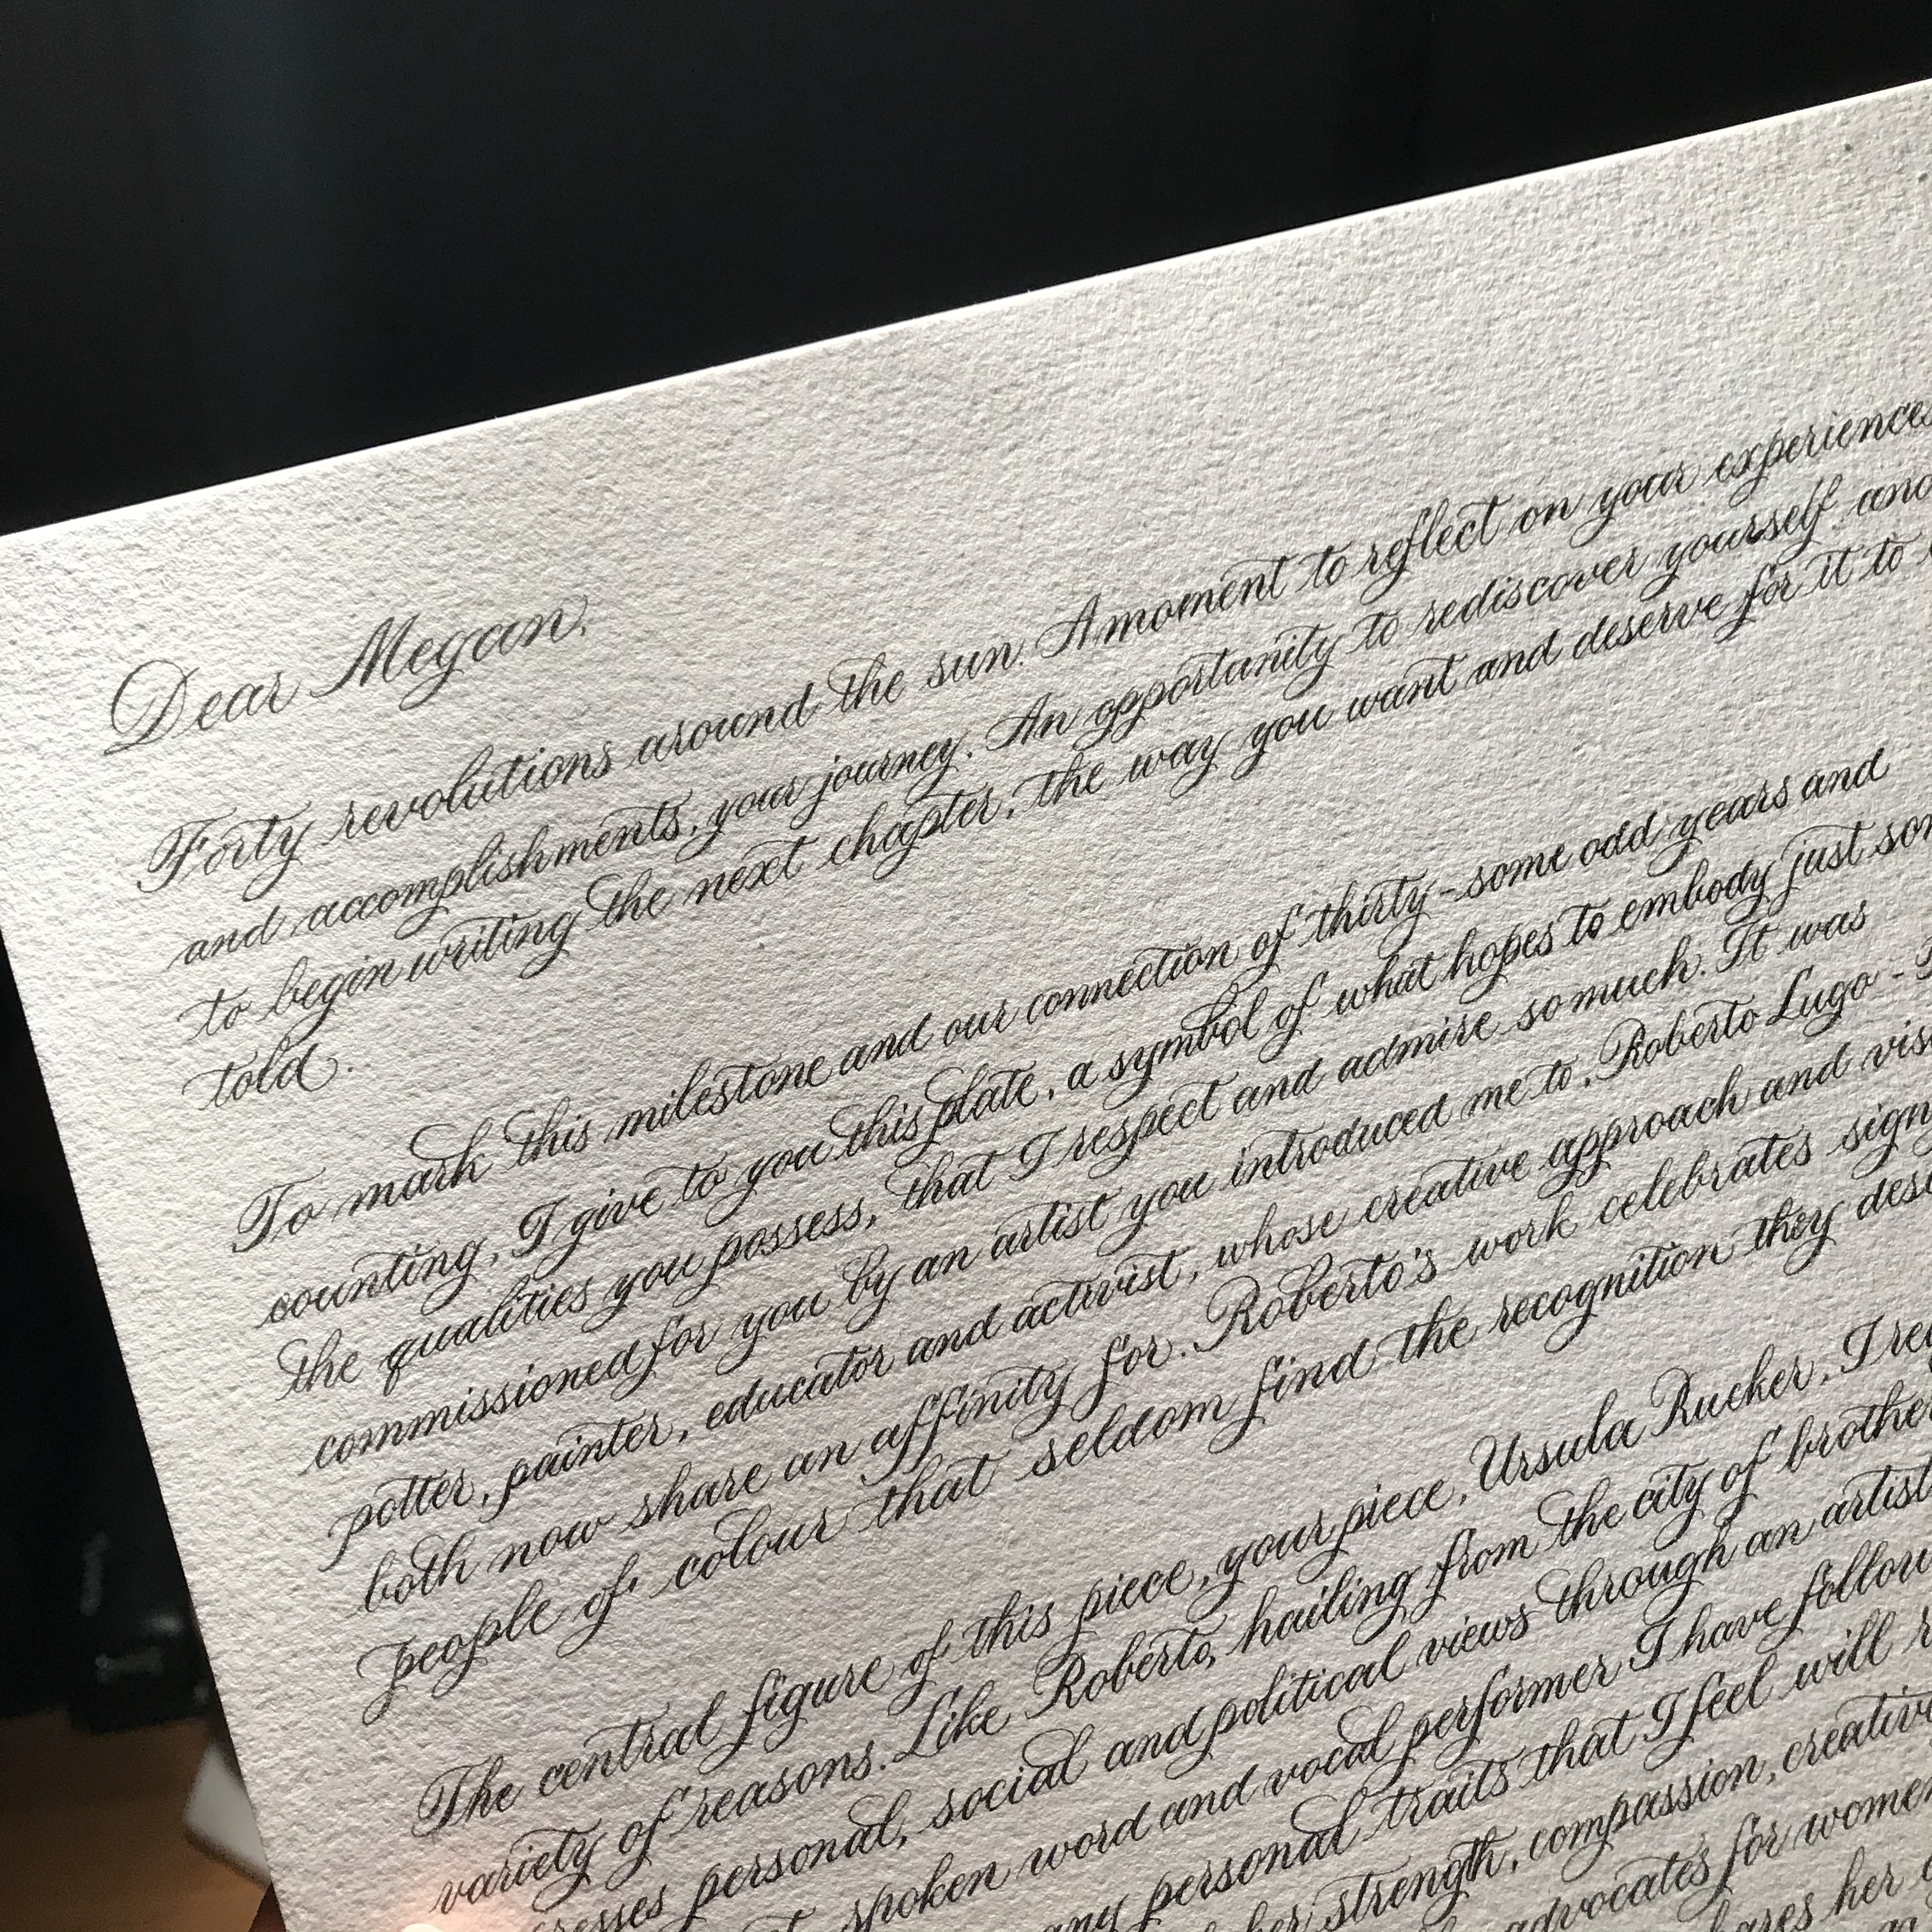 Dear Megan,
Forty revolutions around the sun. A moment to reflect on your experiences
and accomplishments, your journey. An opportunity to rediscover yourself and
to begin writing the next chapter, the way you want and deserve for it to
told.
To mark this milestone and our connection of thirty-some odd years and
counting, I give to you this plate, a symbol of what hopes to embody just
the qualities you possess, that I respect and admire so much. It was
commissioned for you by an artist you introduced me to, Roberto Lugo -
potter, painter, educator and activist, whose creative approach and
both now share an affinity for. Roberto's work celebrates
people of colour that seldom find the recognition they
The central figure of this piece, your piece, Ursula Rucker, I
variety of reasons. Like Roberto, hailing from the city of
personal, social and political views through an artist
spoken word and vocal performer I have
personal traits that I feel will
her strength, compassion,
advocates for women
her